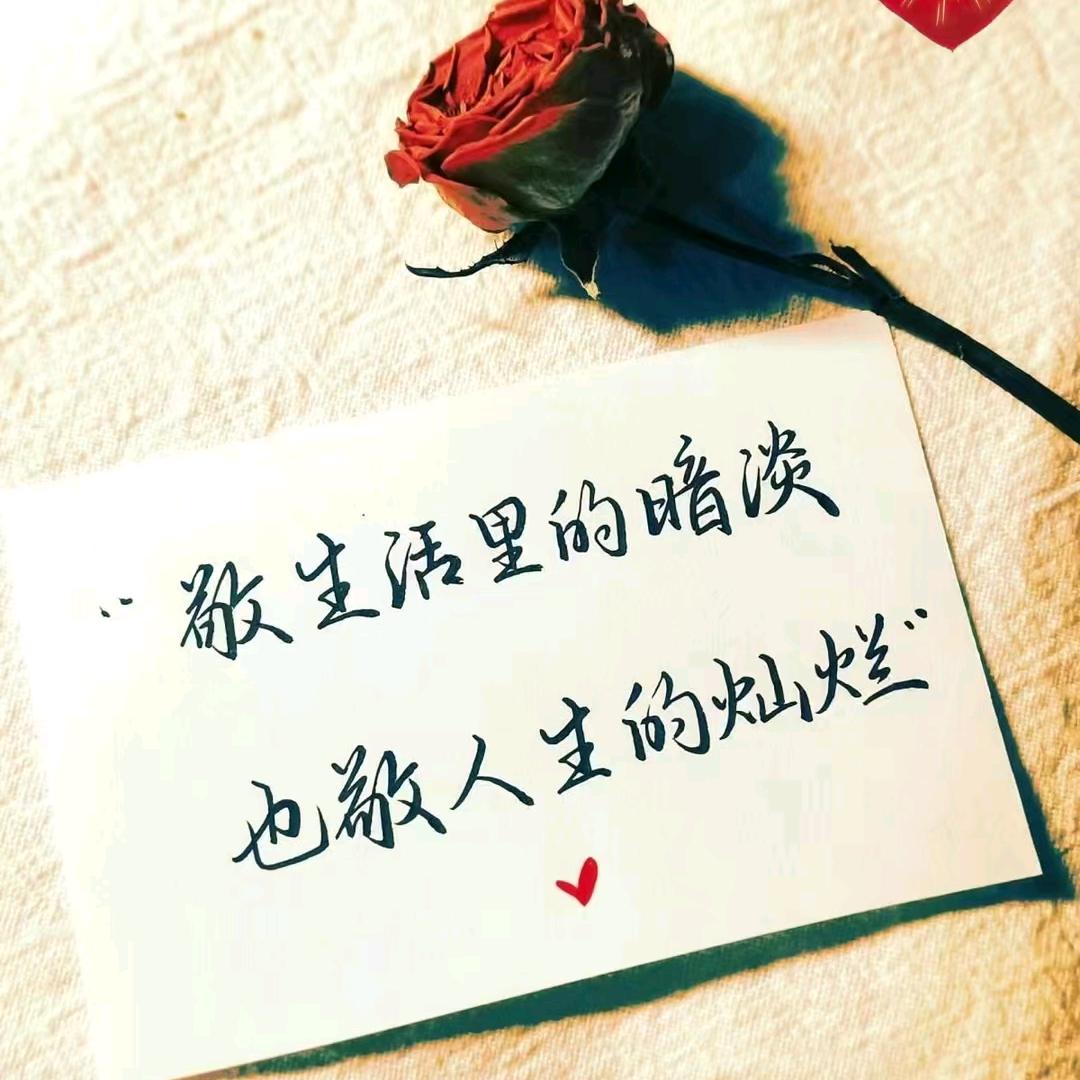 “敬生活里的暗淡
也敬人生的灿烂”